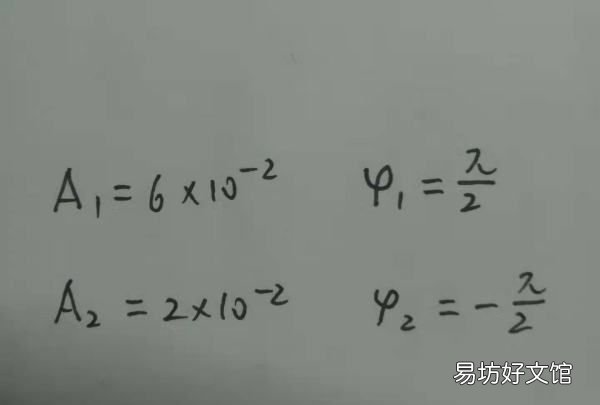 A₁ = 6 × 10⁻² φ₁ = π/2
A₂ = 2 × 10⁻² φ₂ = - π/2
易坊好文馆